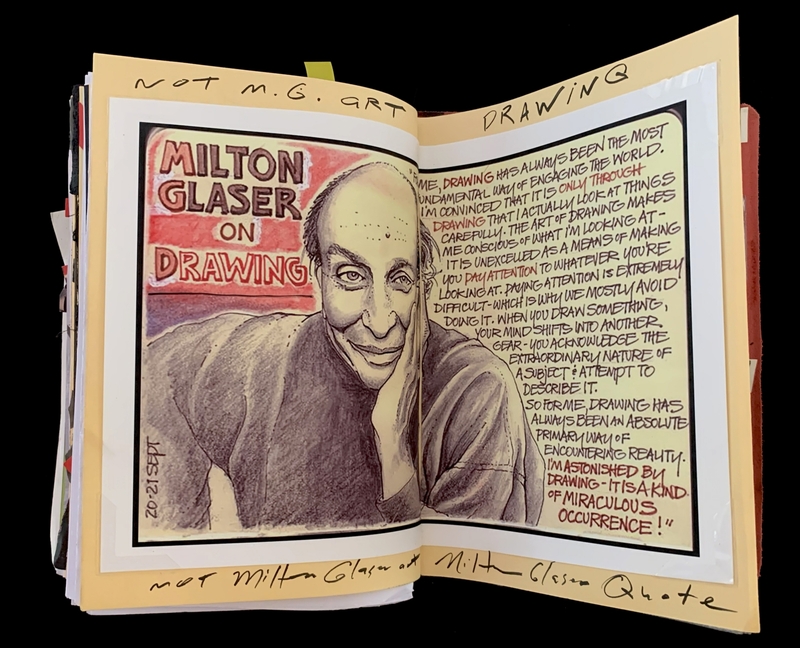 NOT M.G. ART
DRAWING
MILTON
GLASER
ON
DRAWING
ME, DRAWING HAS ALWAYS BEEN THE MOST
UNDAMENTAL WAY OF ENGAGING THE WORLD.
I'M CONVINCED THAT IT IS ONLY THROUGH
DRAWING THAT I ACTUALLY LOOK AT THINGS
CAREFULLY. THE ART OF DRAWING MAKES
ME CONSCIOUS OF WHAT I'M LOOKING AT-
IT IS UNEXCELLED AS A MEANS OF MAKING
YOU PAY ATTENTION TO WHATEVER YOU'RE
LOOKING AT. PAYING ATTENTION IS EXTREMELY
DIFFICULT-WHICH IS WHY WE MOSTLY AVOID
DOING IT. WHEN YOU DRAW SOMETHING,
YOUR MIND SHIFTS INTO ANOTHER
GEAR-YOU ACKNOWLEDGE THE
EXTRAORDINARY NATURE OF
A SUBJECT & ATTEMPT TO
DESCRIBE IT.
SO FOR ME, DRAWING HAS
ALWAYS BEEN AN ABSOLUTE
PRIMARY WAY OF
ENCOUNTERING REALITY.
I'M ASTONISHED BY
DRAWING-IT IS A KIND
OF MIRACULOUS
OCCURRENCE!"
20·21 SEPT
NOT Milton Glaser art
Milton Glaser Quote